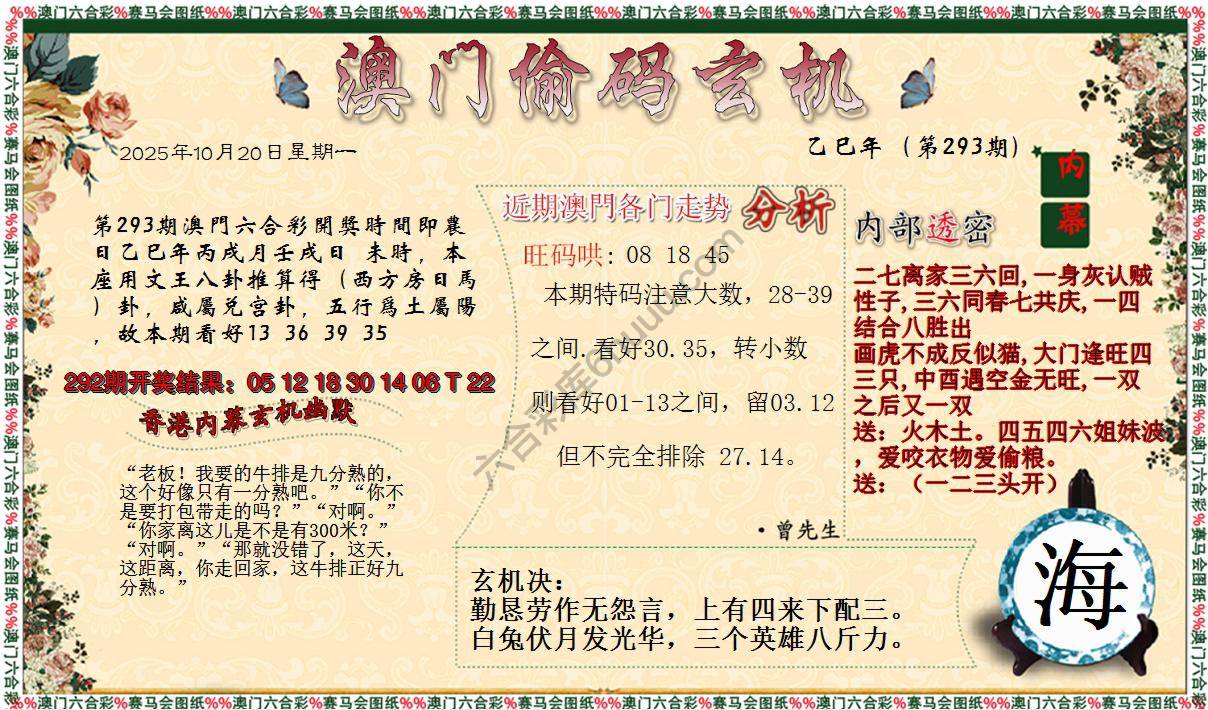 %%澳门六合彩%赛马会图纸%%澳门六合彩%赛马会图纸%%澳门六合彩%赛马会图纸%%澳门六合彩%赛马会图纸%%澳门六合彩%赛马会图纸%%澳门六合彩%赛马会图纸%%
澳门偷码玄机
2025年10月20日星期一
乙巳年（第293期）
内
幕
第293期澳門六合彩開獎時間即農
日乙巳年丙戌月壬戌日 未時，本
座用文王八卦推算得（西方房日馬
）卦，咸屬兑宫卦，五行爲土屬陽
，故本期看好13 36 39 35
292期开奖结果：05 12 18 30 14 06 T 22
香港内幕玄机幽默
“老板！我要的牛排是九分熟的，
这个好像只有一分熟吧。”“你不
是要打包带走的吗？”“对啊。”
“你家离这儿是不是有300米？”
“对啊。”“那就没错了，这天，
这距离，你走回家，这牛排正好九
分熟。”
近期澳門各门走势 分析
旺码哄: 08 18 45
本期特码注意大数，28-39
之间.看好30.35，转小数
则看好01-13之间，留03.12
但不完全排除 27.14。
·曾先生
内部透密
二七离家三六回,一身灰认贼
性子,三六同春七共庆,一四
结合八胜出
画虎不成反似猫,大门逢旺四
三只,中酉遇空金无旺,一双
之后又一双
送：火木土。四五四六姐妹波
，爱咬衣物爱偷粮。
送：（一二三头开）
玄机决：
勤恳劳作无怨言，上有四来下配三。
白兔伏月发光华，三个英雄八斤力。
海
%%澳门六合彩%赛马会图纸%%澳门六合彩%赛马会图纸%%澳门六合彩%赛马会图纸%%澳门六合彩%赛马会图纸%%澳门六合彩%赛马会图纸%%澳门六合彩%赛马会图纸%%